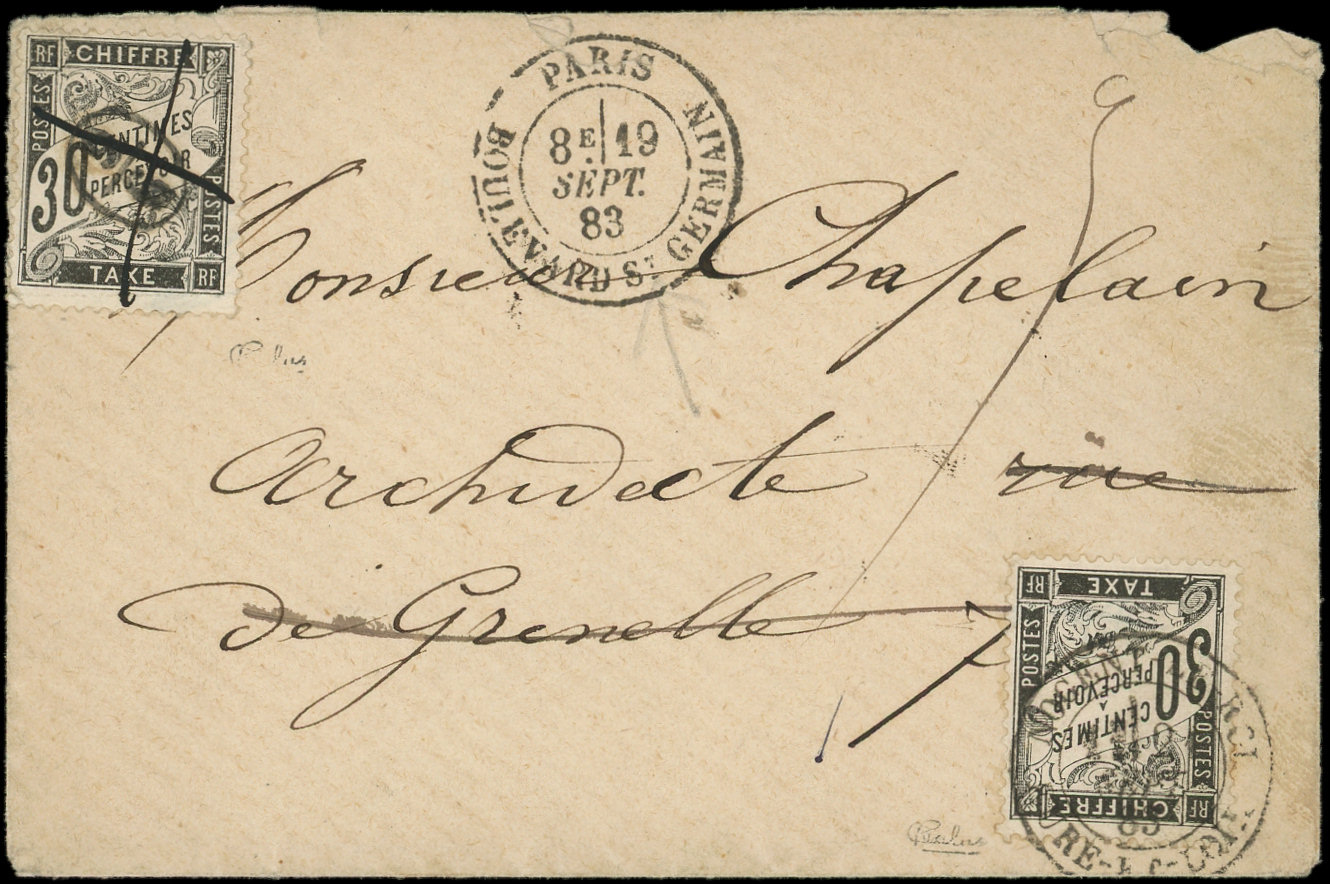 RF CHIFFRE
POSTES
CENTIMES
PERCEVOIR
30
POSTES
TAXE RF
PARIS
8E 19
SEPT.
83
BOULEVARD ST GERMAIN
Monsieur Chapelain
Architecte rue
de Grenelle 7
RF TAXE
POSTES
30
CENTIMES
A
PERCEVOIR
POSTES
CHIFFRE RF
83